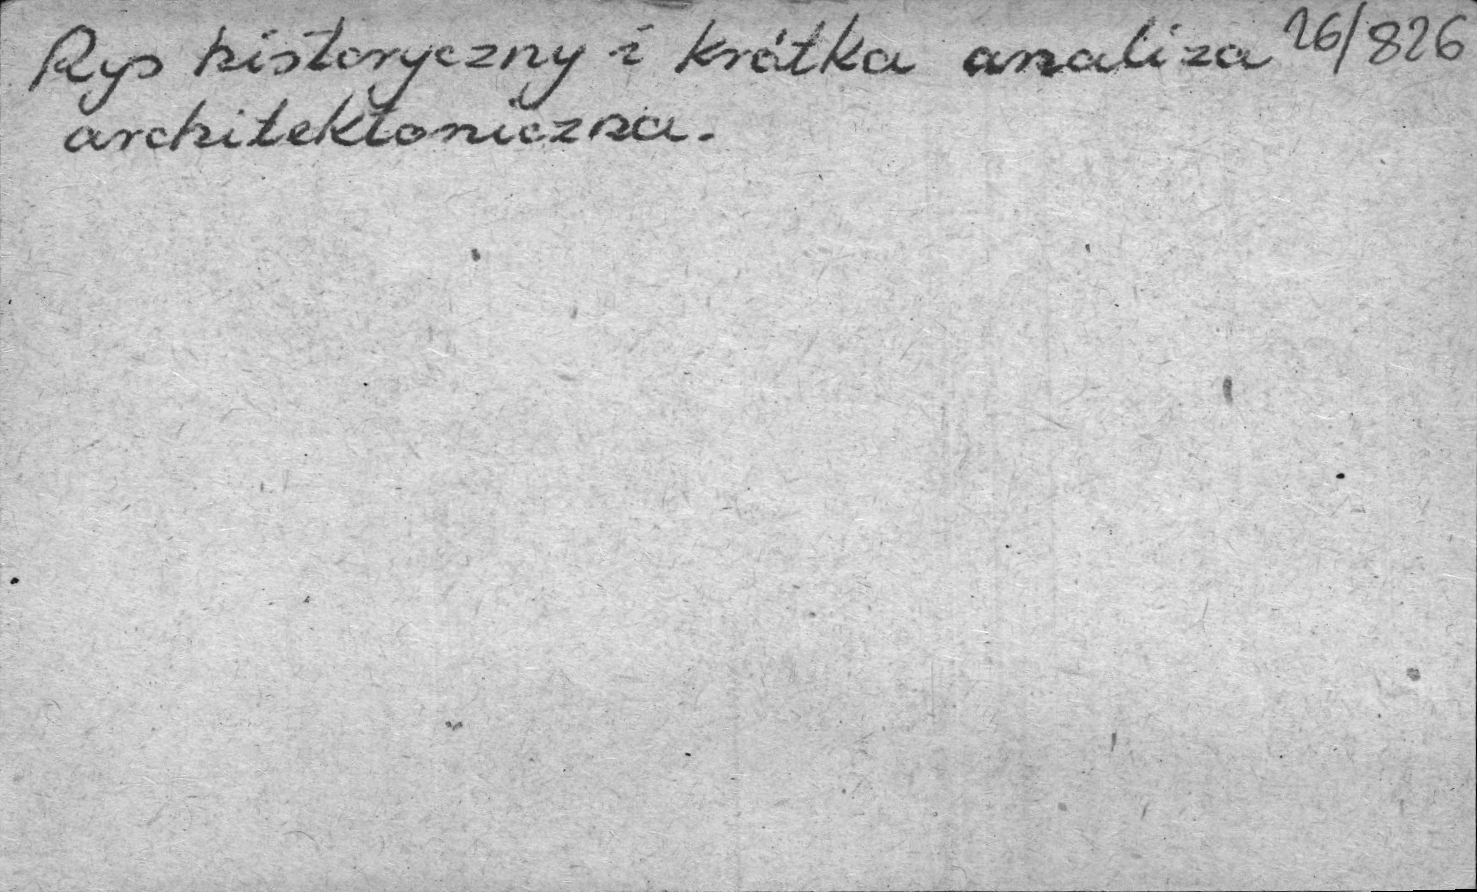 Rys historyczny i krótka analiza 26/826
architektoniczna.